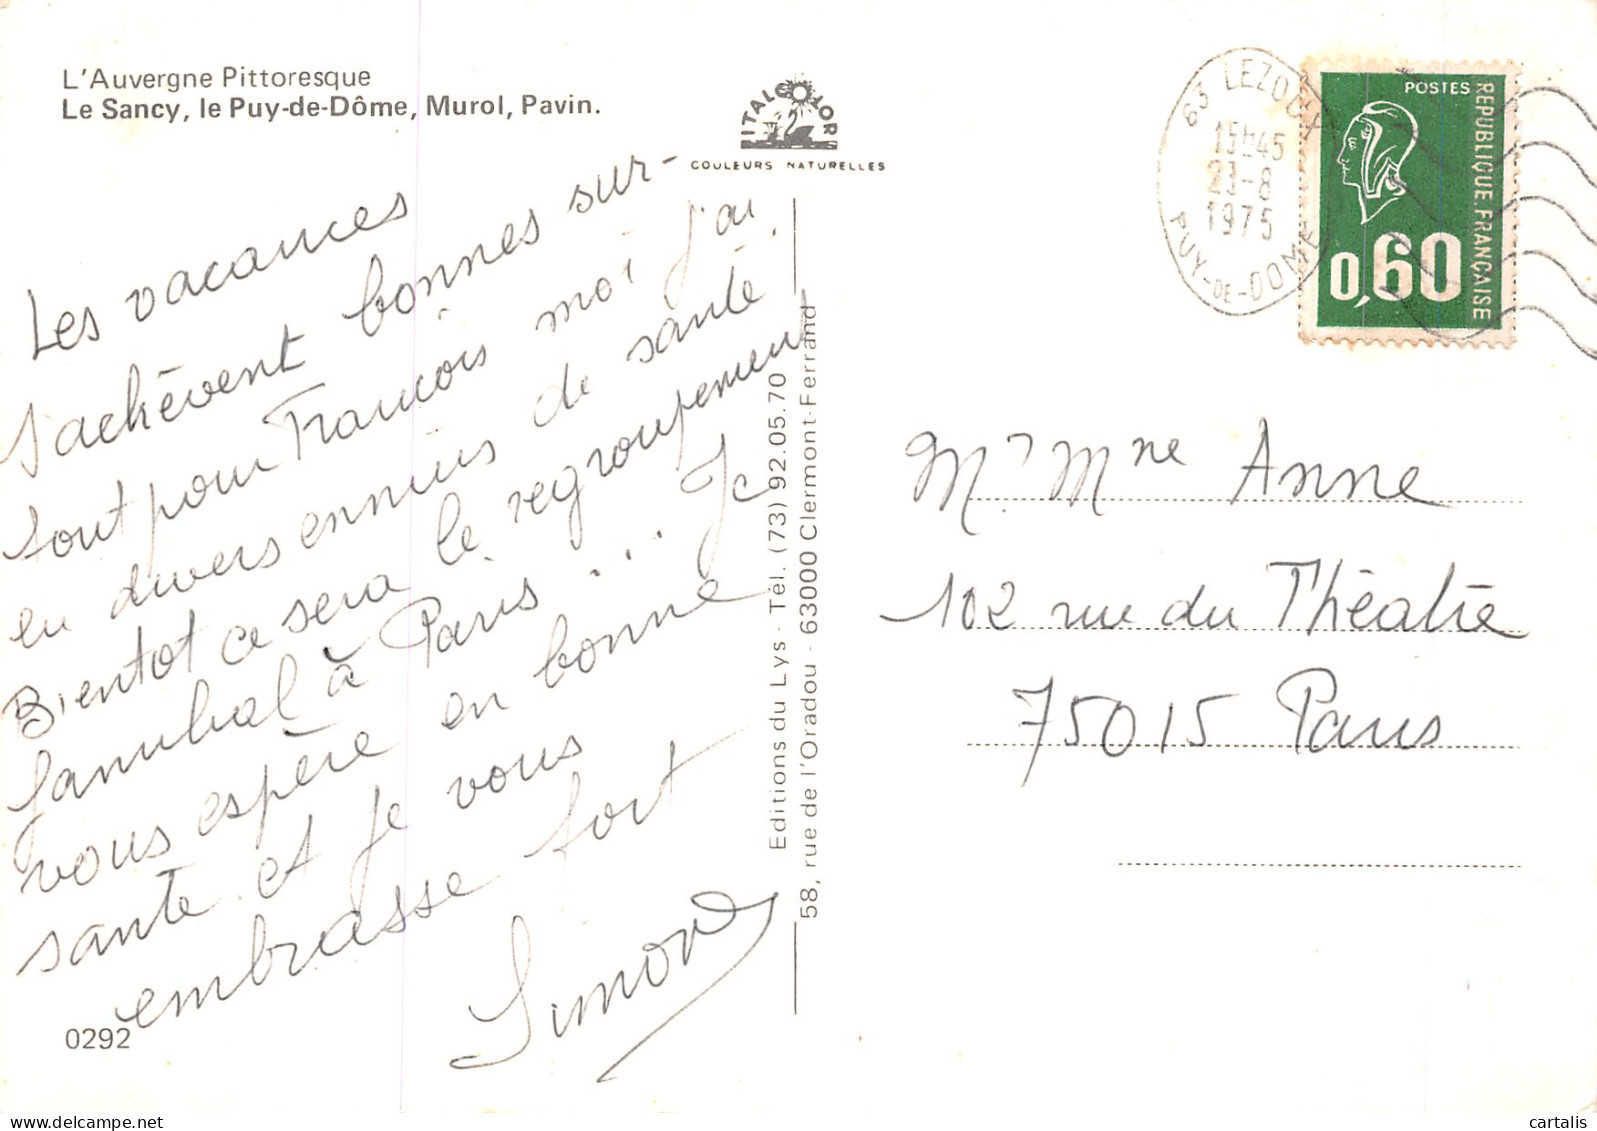 L'Auvergne Pittoresque
Le Sancy, le Puy-de-Dôme, Murol, Pavin.
ITALCOLOR
COULEURS NATURELLES
Les vacances
s'achèvent bonnes sur-
tout pour François moi j'ai
eu divers ennuis de santé.
Bientot ce sera le regroupement
familial à Paris ... Je
vous espère en bonne
santé et je vous
embrasse fort
Simone
0292
Editions du Lys - Tél. (73) 92.05.70
58, rue de l'Oradou - 63000 Clermont-Ferrand
63 LEZOUX
15H45
23-8
1975
PUY-DE-DOME
POSTES
REPUBLIQUE FRANÇAISE
0,60
Mr Mme Anne
102 rue du Théatre
75015 Paris
cartalis.com